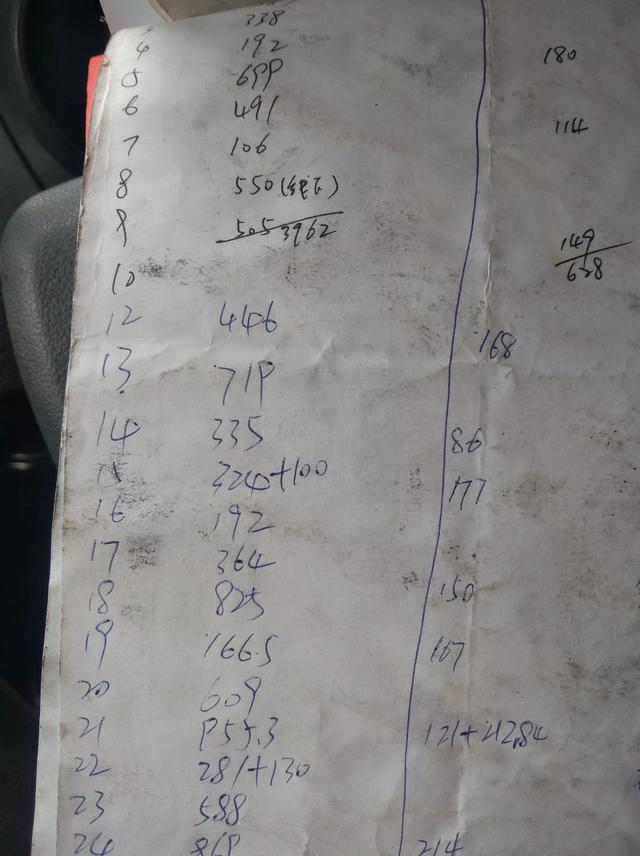 338
4 192 180
5 699
6 491 114
7 106
8 550
9 505 3962 149
638
10
12 446 168
13 719
14 335 86
15 324+100 177
16 192
17 364
18 825 150
19 166.5 107
20 609
21 955.3 121+212.84
22 281+130
23 588
24 869 214